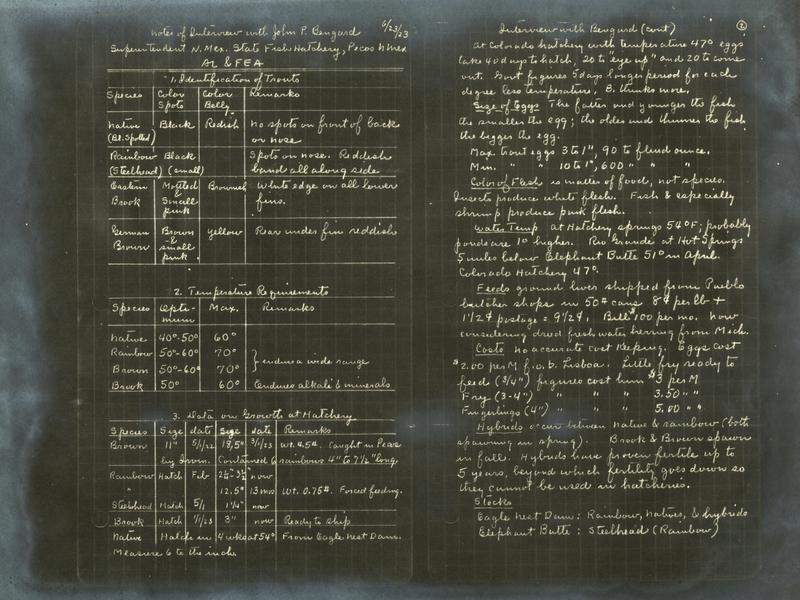 Notes of Interview with John P. Bengard 6/23/23
Superintendent N. Mex. State Fish Hatchery, Pecos N Mex
AL & FEA
1. Identification of Trouts
Species Color Spots Color Belly Remarks
Native (Bl. Spotted) Black Redish No spots on front of back or nose
Rainbow (Steelhead) Black (small) Spots on nose. Reddish band all along side
Eastern Brook Mottled & small pink Brownish White edge on all lower fins.
German Brown Brown & small pink Yellow Rear under fin reddish
2. Temperature Requirements
Species Optimum Max. Remarks
Native 40°-50° 60°
Rainbow 50°-60° 70°
Brown 50°-60° 70° } endures a wide range
Brook 50° 60° Endures alkali & minerals
3. Data on Growth at Hatchery
Species Size date Size date Remarks
Brown 11" 5/1/22 18.5" 3/1/23 Wt. 4.5#. Caught in Pecos
by Irvin. Contained 6 rainbows 4" to 7½" long.
Rainbow Hatch Feb 2½"-3½" now
" 12.5" 13 mos Wt. 0.75#. Forced feeding.
Steelhead Hatch 5/1 1¼" now
Brook Hatch 1/1/23 3" now Ready to ship
Native Hatch in 4 wks at 54° From Eagle Nest Dam.
Measure 6 to the inch
Interview with Bengard (cont) 2
At Colorado hatchery with temperature 47° eggs
take 40 days to hatch, 20 to "eye up" and 20 to come
out. Govt figures 5 days longer period for each
degree less temperature, B. thinks more.
Size of Eggs The fatter and younger the fish
the smaller the egg; the older and thinner the fish
the bigger the egg.
Max trout eggs 3 to 1", 90 to fluid ounce.
Min. " " 10 to 1", 600 " " "
Color of Flesh is matter of food, not species.
Insects produce white flesh. Fish & especially
shrimp produce pink flesh.
Water Temp at Hatchery springs 54°F; probably
ponds are 1° higher. Rio Grande at Hot Springs
5 miles below Elephant Butte 51° in April.
Colorado Hatchery 47°.
Feeds ground liver shipped from Pueblo
butcher shops in 50# cans 8¢ per lb +
1½¢ postage = 9½¢. Bill $100 per mo. Now
considering dried freshwater herring from Mich.
Costs no accurate cost keeping. Eggs cost
$2.00 per M f.o.b. Lisboa. Little fry ready to
feed (¾") figures cost him $3 per M
Fry (3-4") " " " 3.50 " "
Fingerlings (4") " " " 5.00 " "
Hybrids occur between native & rainbow (both
spawning in spring). Brook & Brown spawn
in fall. Hybrids have proven fertile up to
5 years, beyond which fertility goes down so
they cannot be used in hatcheries.
Stocks
Eagle Nest Dam: Rainbow, Natives, & hybrids
Elephant Butte: Steelhead (Rainbow)